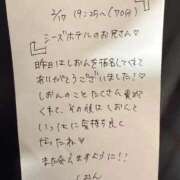 2/17 19:25〜(70分)
シーズホテルのお兄さん♡
昨日はしおんを指名して下さて
ありがとうございました!
しおんのことたくさん責めて
くれて、その後はしおんと
いっしょに気持ち良く
なったね♡
また会えますように!!
しおん